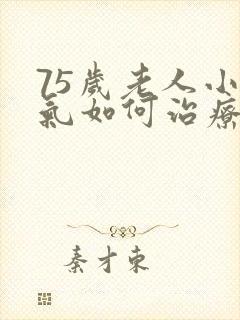 75歲老人小
氣如何治療
秦才東